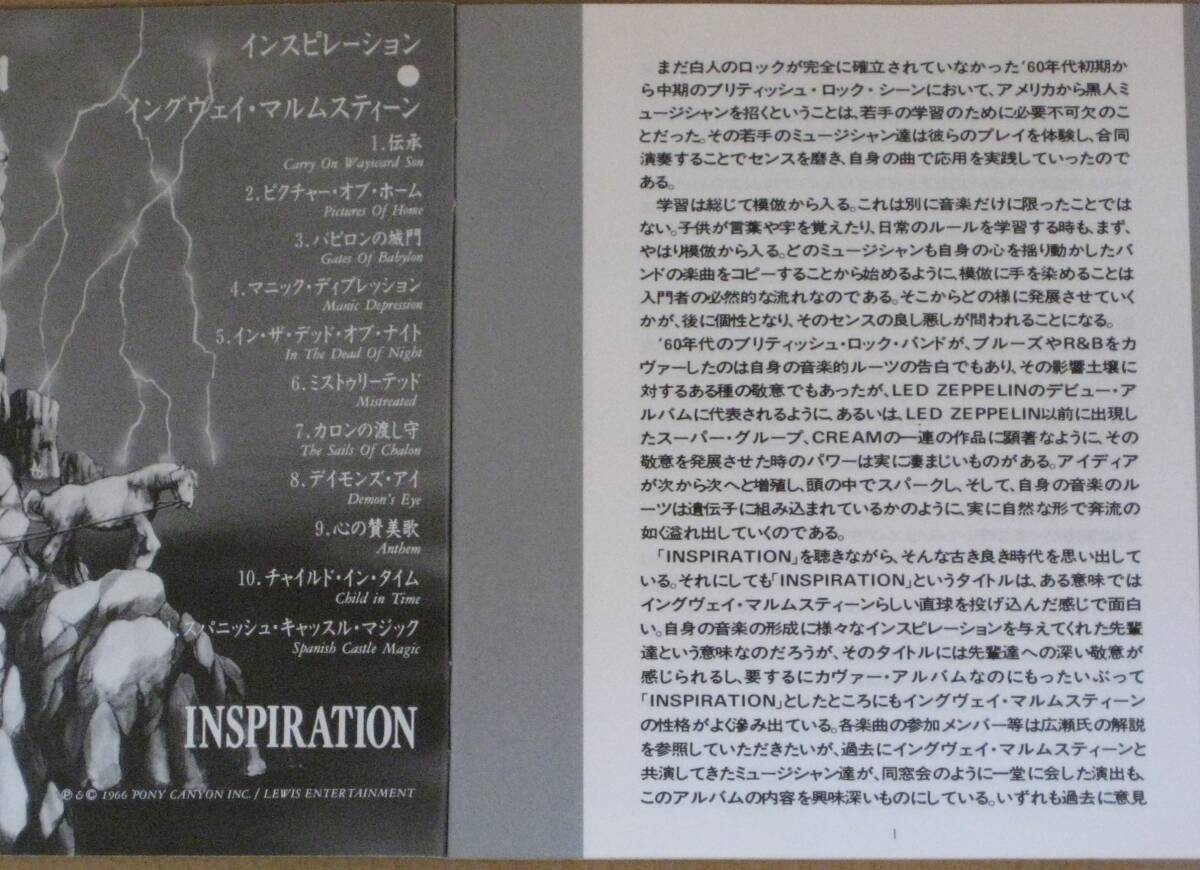 インスピレーション
●
イングヴェイ・マルムスティーン
1.伝承
Carry On Wayward Son
2.ピクチャー・オブ・ホーム
Pictures Of Home
3.バビロンの城門
Gates Of Babylon
4.マニック・ディプレッション
Manic Depression
5.イン・ザ・デッド・オブ・ナイト
In The Dead Of Night
6.ミストゥリーテッド
Mistreated
7.カロンの渡し守
The Sails Of Chalon
8.デイモンズ・アイ
Demon's Eye
9.心の賛美歌
Anthem
10.チャイルド・イン・タイム
Child in Time
.スパニッシュ・キャッスル・マジック
Spanish Castle Magic
INSPIRATION
℗&© 1966 PONY CANYON INC. / LEWIS ENTERTAINMENT
まだ白人のロックが完全に確立されていなかった'60年代初期か
ら中期のブリティッシュ・ロック・シーンにおいて、アメリカから黒人ミ
ュージシャンを招くということは、若手の学習のために必要不可欠のこ
とだった。その若手のミュージシャン達は彼らのプレイを体験し、合同
演奏することでセンスを磨き、自身の曲で応用を実践していったので
ある。
学習は総じて模倣から入る。これは別に音楽だけに限ったことでは
ない。子供が言葉や字を覚えたり、日常のルールを学習する時も、まず、
やはり模倣から入る。どのミュージシャンも自身の心を揺り動かしたバ
ンドの楽曲をコピーすることから始めるように、模倣に手を染めることは
入門者の必然的な流れなのである。そこからどの様に発展させていく
かが、後に個性となり、そのセンスの良し悪しが問われることになる。
'60年代のブリティッシュ・ロック・バンドが、ブルーズやR&Bをカ
ヴァーしたのは自身の音楽的ルーツの告白でもあり、その影響土壌に
対するある種の敬意でもあったが、LED ZEPPELINのデビュー・ア
ルバムに代表されるように、あるいは、LED ZEPPELIN以前に出現し
たスーパー・グループ、CREAMの一連の作品に顕著なように、その
敬意を発展させた時のパワーは実に凄まじいものがある。アイディア
が次から次へと増殖し、頭の中でスパークし、そして、自身の音楽のル
ーツは遺伝子に組み込まれているかのように、実に自然な形で奔流の
如く溢れ出していくのである。
「INSPIRATION」を聴きながら、そんな古き良き時代を思い出して
いる。それにしても「INSPIRATION」というタイトルは、ある意味では
イングヴェイ・マルムスティーンらしい直球を投げ込んだ感じで面白
い。自身の音楽の形成に様々なインスピレーションを与えてくれた先輩
達という意味なのだろうが、そのタイトルには先輩達への深い敬意が
感じられるし、要するにカヴァー・アルバムなのにもったいぶって
「INSPIRATION」としたところにもイングヴェイ・マルムスティーン
の性格がよく滲み出ている。各楽曲の参加メンバー等は広瀬氏の解説
を参照していただきたいが、過去にイングヴェイ・マルムスティーンと
共演してきたミュージシャン達が、同窓会のように一堂に会した演出も、
このアルバムの内容を興味深いものにしている。いずれも過去に意見
1